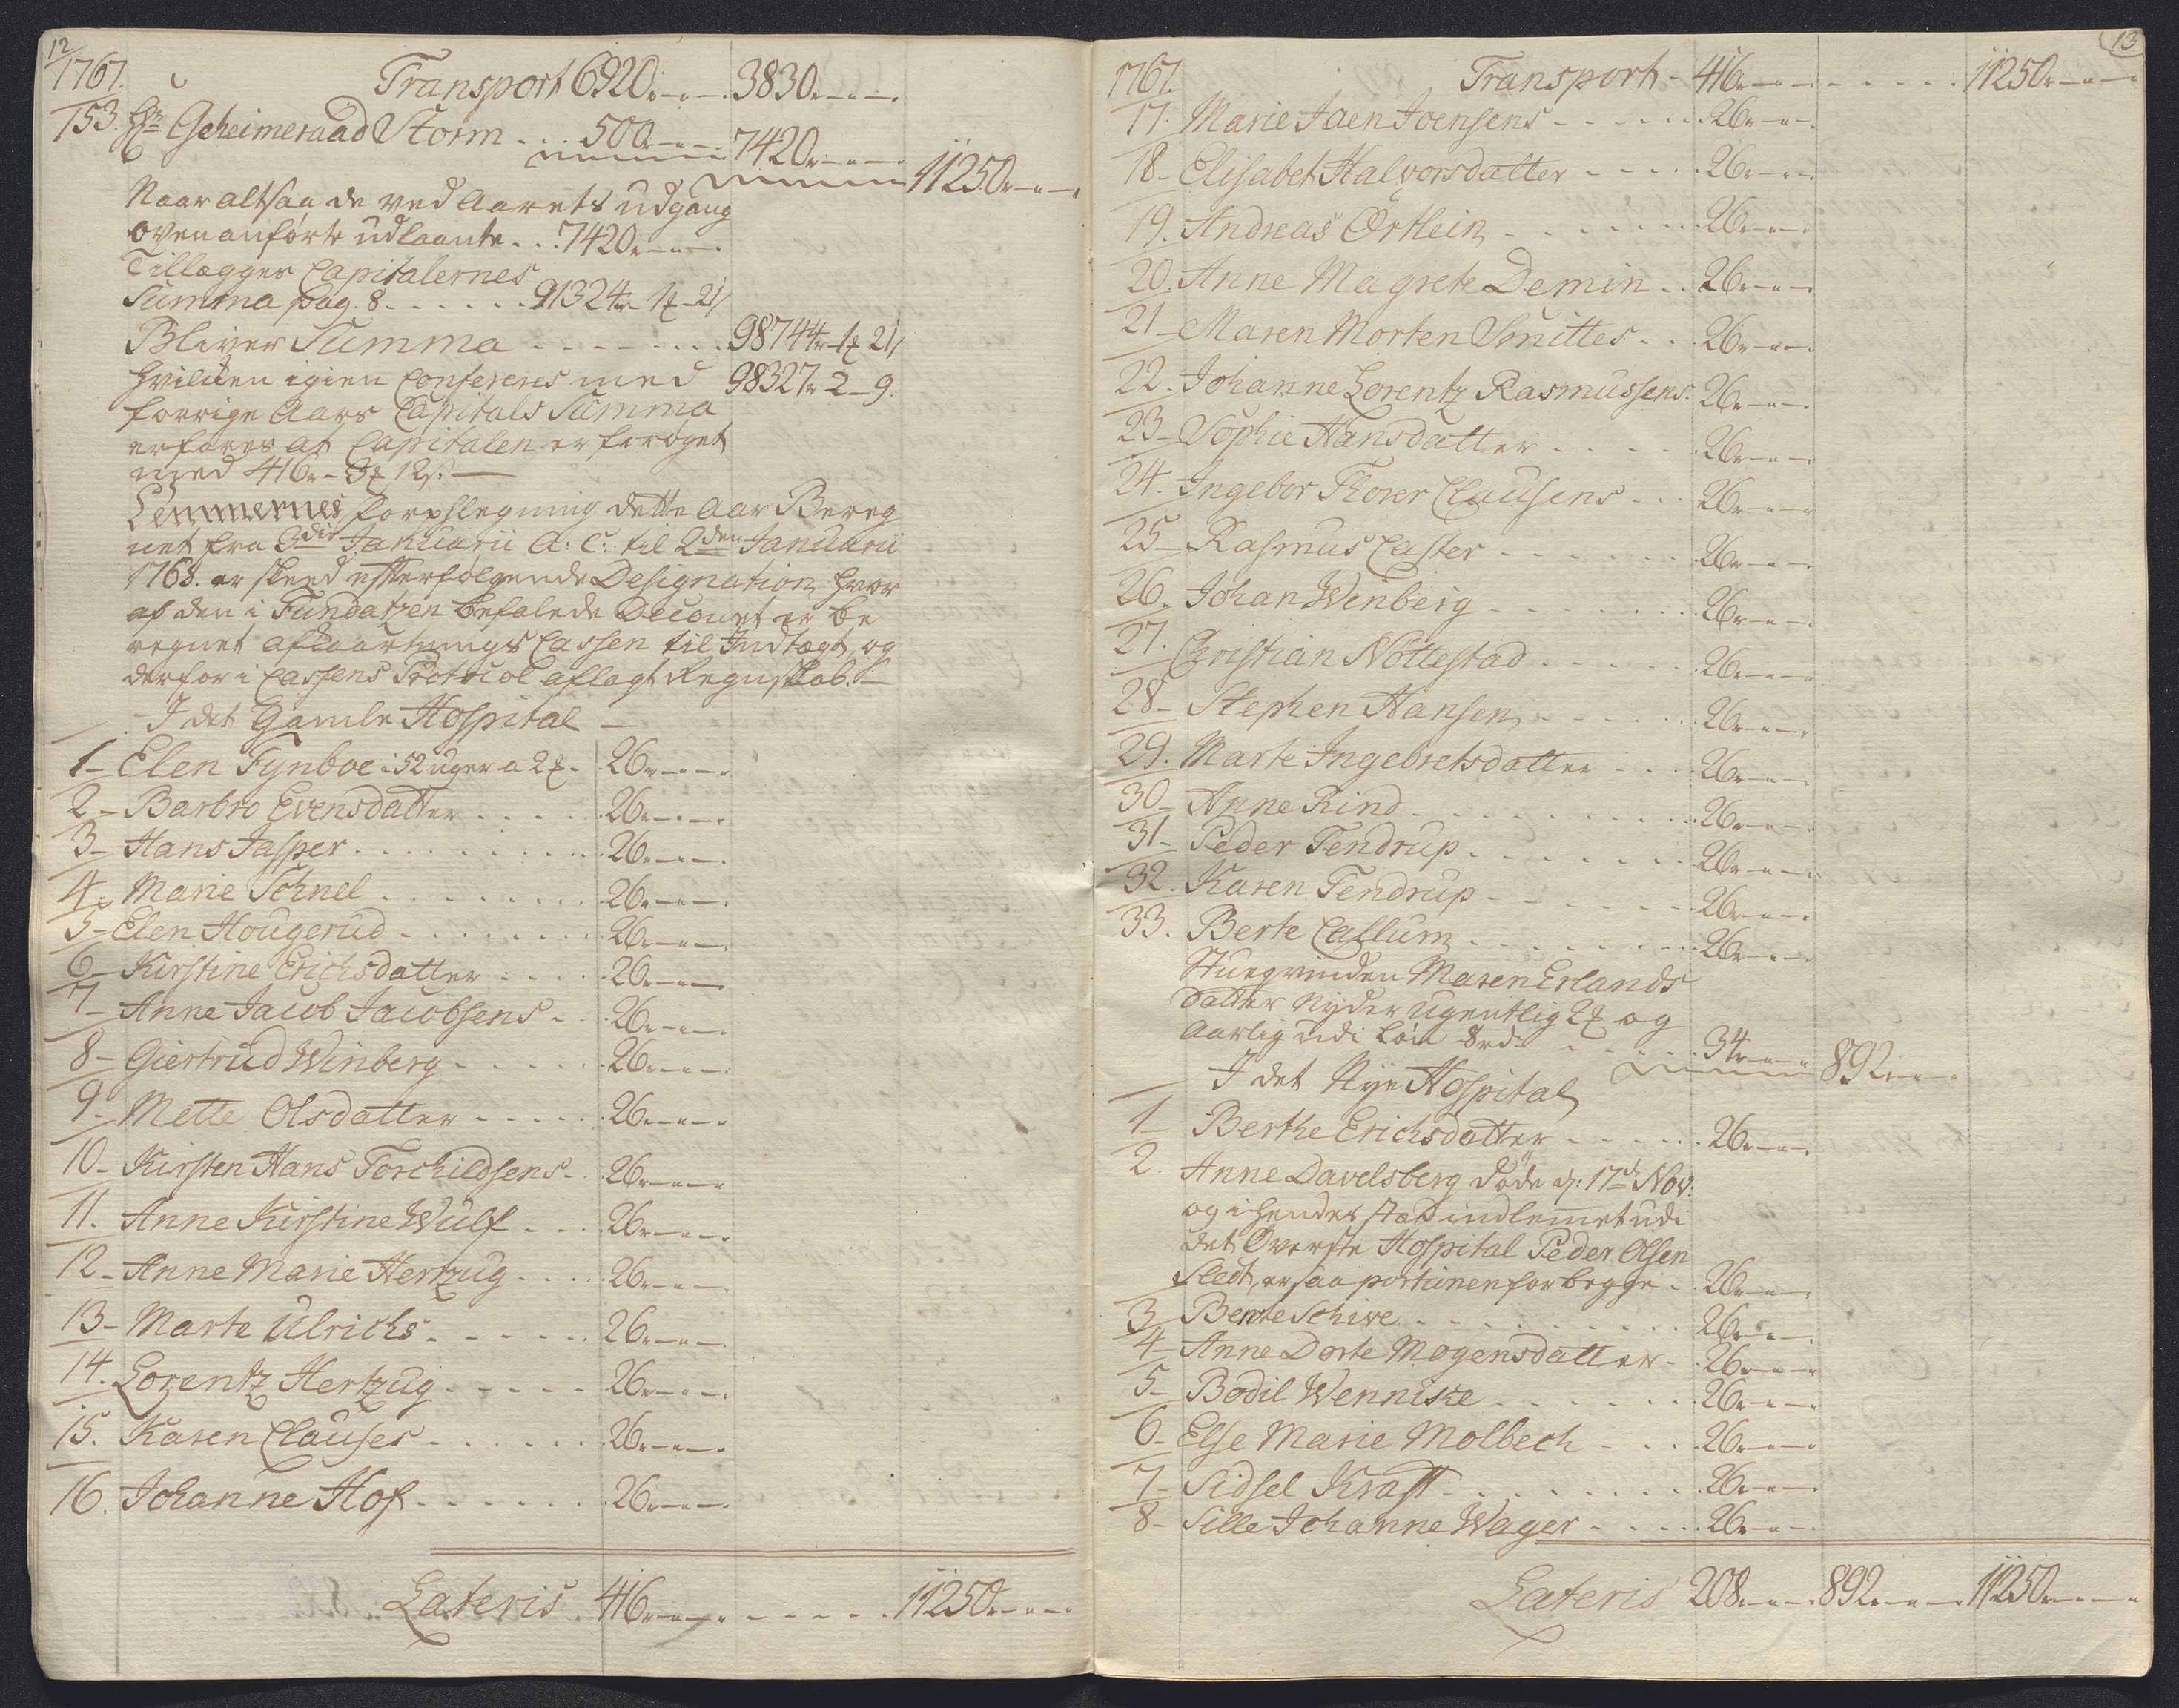 12
1767. Transport 6920.-.-. 3830.-.-.
153. Hr Geheimeraad Storm . . . 500.-.-. 7420.-.-. 11250.-.-.
Naar altsaa de ved Aarets udgang
ovenanførte udlaante . . . 7420.-.-.
Tillægges Capitalernes
Summa pag. 8 . . . . . . 91324r 1 21
Bliver Summa . . . . . . . . 98744r 1 21
hvilcken igien Confereres med 98327r 2 - 9.
forrige Aars Capitals Summa
erfares at Capitalen er forøget
med 416r - 3 12s. —
Lemmernes forpflegning dette Aar Bereg
net fra 3die Januarii A: C: til 2den Januarii
1768. er skeed efterfølgende Designation, hvor
af den i Fundatzen befalede Decouet er be
regnet afkaartnings Cassen til Indtægt, og
derfor i Cassens Protocol aflagt Regnskab. —
I det Gamle Hospital —
1 - Elen Fynboe i 52 uger a 2 . 26.-.-.
2 - Barbro Evensdatter . . . . . 26.-.-.
3 - Hans Jasper . . . . . . . . . 26.-.-.
4. Marie Schnel . . . . . . . . 26.-.-.
5 - Elen Hougerud . . . . . . . 26.-.-.
6 - Kirstine Erichsdatter . . . . 26.-.-.
7 - Anne Jacob Jacobsens . . 26.-.-.
8 - Giertrud Winberg . . . . . 26.-.-.
9 - Mette Olsdatter . . . . . 26.-.-.
10 - Kirsten Hans Torchildsens . 26.-.-.
11. Anne Kirstine Wulf . . . 26.-.-.
12 - Anne Marie Hertzug . . . . 26.-.-.
13 - Marte Ulrichs . . . . . . 26.-.-.
14. Lorentz Hertzug . . . . . 26.-.-.
15. Karen Clauses . . . . . . 26.-.-.
16. Johanne Hof . . . . . . 26.-.-.
Lateris . 416.-.-. . . . . . 11250.-.-.
13
1767. Transport - 416.-.-. . . . . 11250.-.-.
17. Marie Jaen Joensens . . . . . . 26.-.-.
18 - Elisabet Halvorsdatter . . . . 26.-.-.
19. Andreas Örtlein . . . . . . . 26.-.-.
20. Anne Magrete Demin . . 26.-.-.
21 - Maren Morten Smittes . . . 26.-.-.
22. Johanne Lorentz Rasmussens . 26.-.-.
23 - Sophie Hansdatter . . . . . 26.-.-.
24. Ingebor Thorer Clausens . . . 26.-.-.
25 - Rasmus Caster . . . . . . 26.-.-.
26. Johan Winberg . . . . . . . 26.-.-.
27. Christian Nottestad . . . . . 26.-.-.
28 - Stephen Hansen . . . . . . 26.-.-.
29. Marte Ingebretsdatter . . . 26.-.-.
30 - Anne Rind . . . . . . . . . 26.-.-.
31 - Peder Tendrup . . . . . . . 26.-.-.
32. Karen Tendrup . . . . . . 26.-.-.
33. Berte Callum . . . . . . . . 26.-.-.
Stueqvinden Maren Erlands
datter Nyder Ugentlig 2 og
Aarlig udi Løn 8rd . . . . . . 34.-.-. 892.-.-.
I det Nye Hospital
1 - Berthe Erichsdatter . . . . . 26.-.-.
2. Anne Davelsberg døde d: 17de Nov:
og i hendes stæd indlemmet udi
det Øverste Hospital Peder Olsen
Sledt, er saa portionen for begge . 26.-.-.
3 Bente Schive . . . . . . . . . 26.-.-.
4 - Anne Dorte Mogensdatter . 26.-.-.
5 - Bodil Wenniske . . . . . . . 26.-.-.
6 - Else Marie Molbech . . . 26.-.-.
7 - Sidsel Kraft . . . . . . . . 26.-.-.
8 - Sille Johanne Wager . . . . 26.-.-.
Lateris 208.-.-. 892.-.-. 11250.-.-.